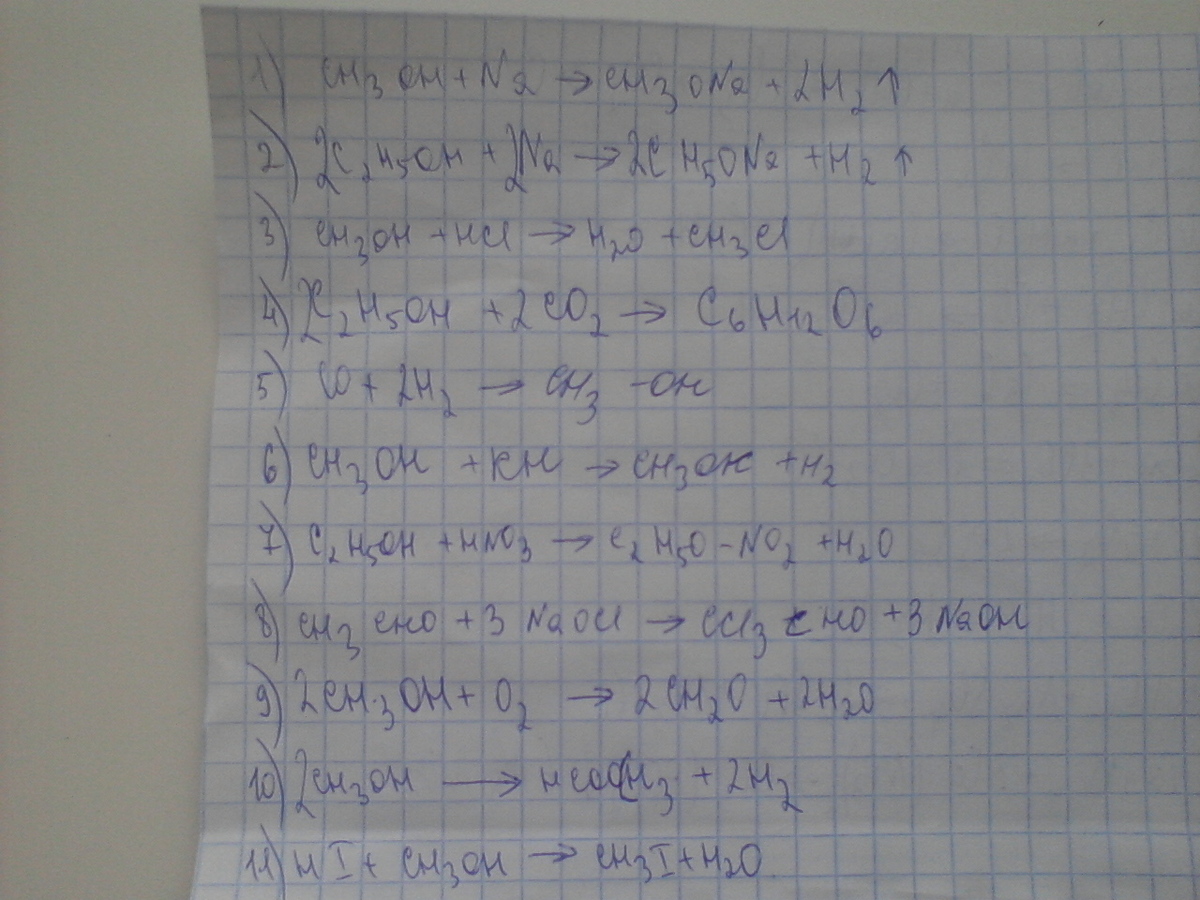 1) CH₃OH + Na → CH₃ONa + 2H₂↑
2) 2C₂H₅OH + 2Na → 2CH₅ONa + H₂↑
3) CH₃OH + HCl → H₂O + CH₃Cl
4) 2C₂H₅OH + 2CO₂ → C₆H₁₂O₆
5) CO + 2H₂ → CH₃ -OH
6) CH₃OH + KH → CH₃OK + H₂
7) C₂H₅OH + HNO₃ → C₂H₅O-NO₂ + H₂O
8) CH₃CHO + 3NaOCl → CCl₃CHO + 3NaOH
9) 2CH₃OH + O₂ → 2CH₂O + 2H₂O
10) 2CH₃OH → HCOOCH₃ + 2H₂
11) HI + CH₃OH → CH₃I + H₂O